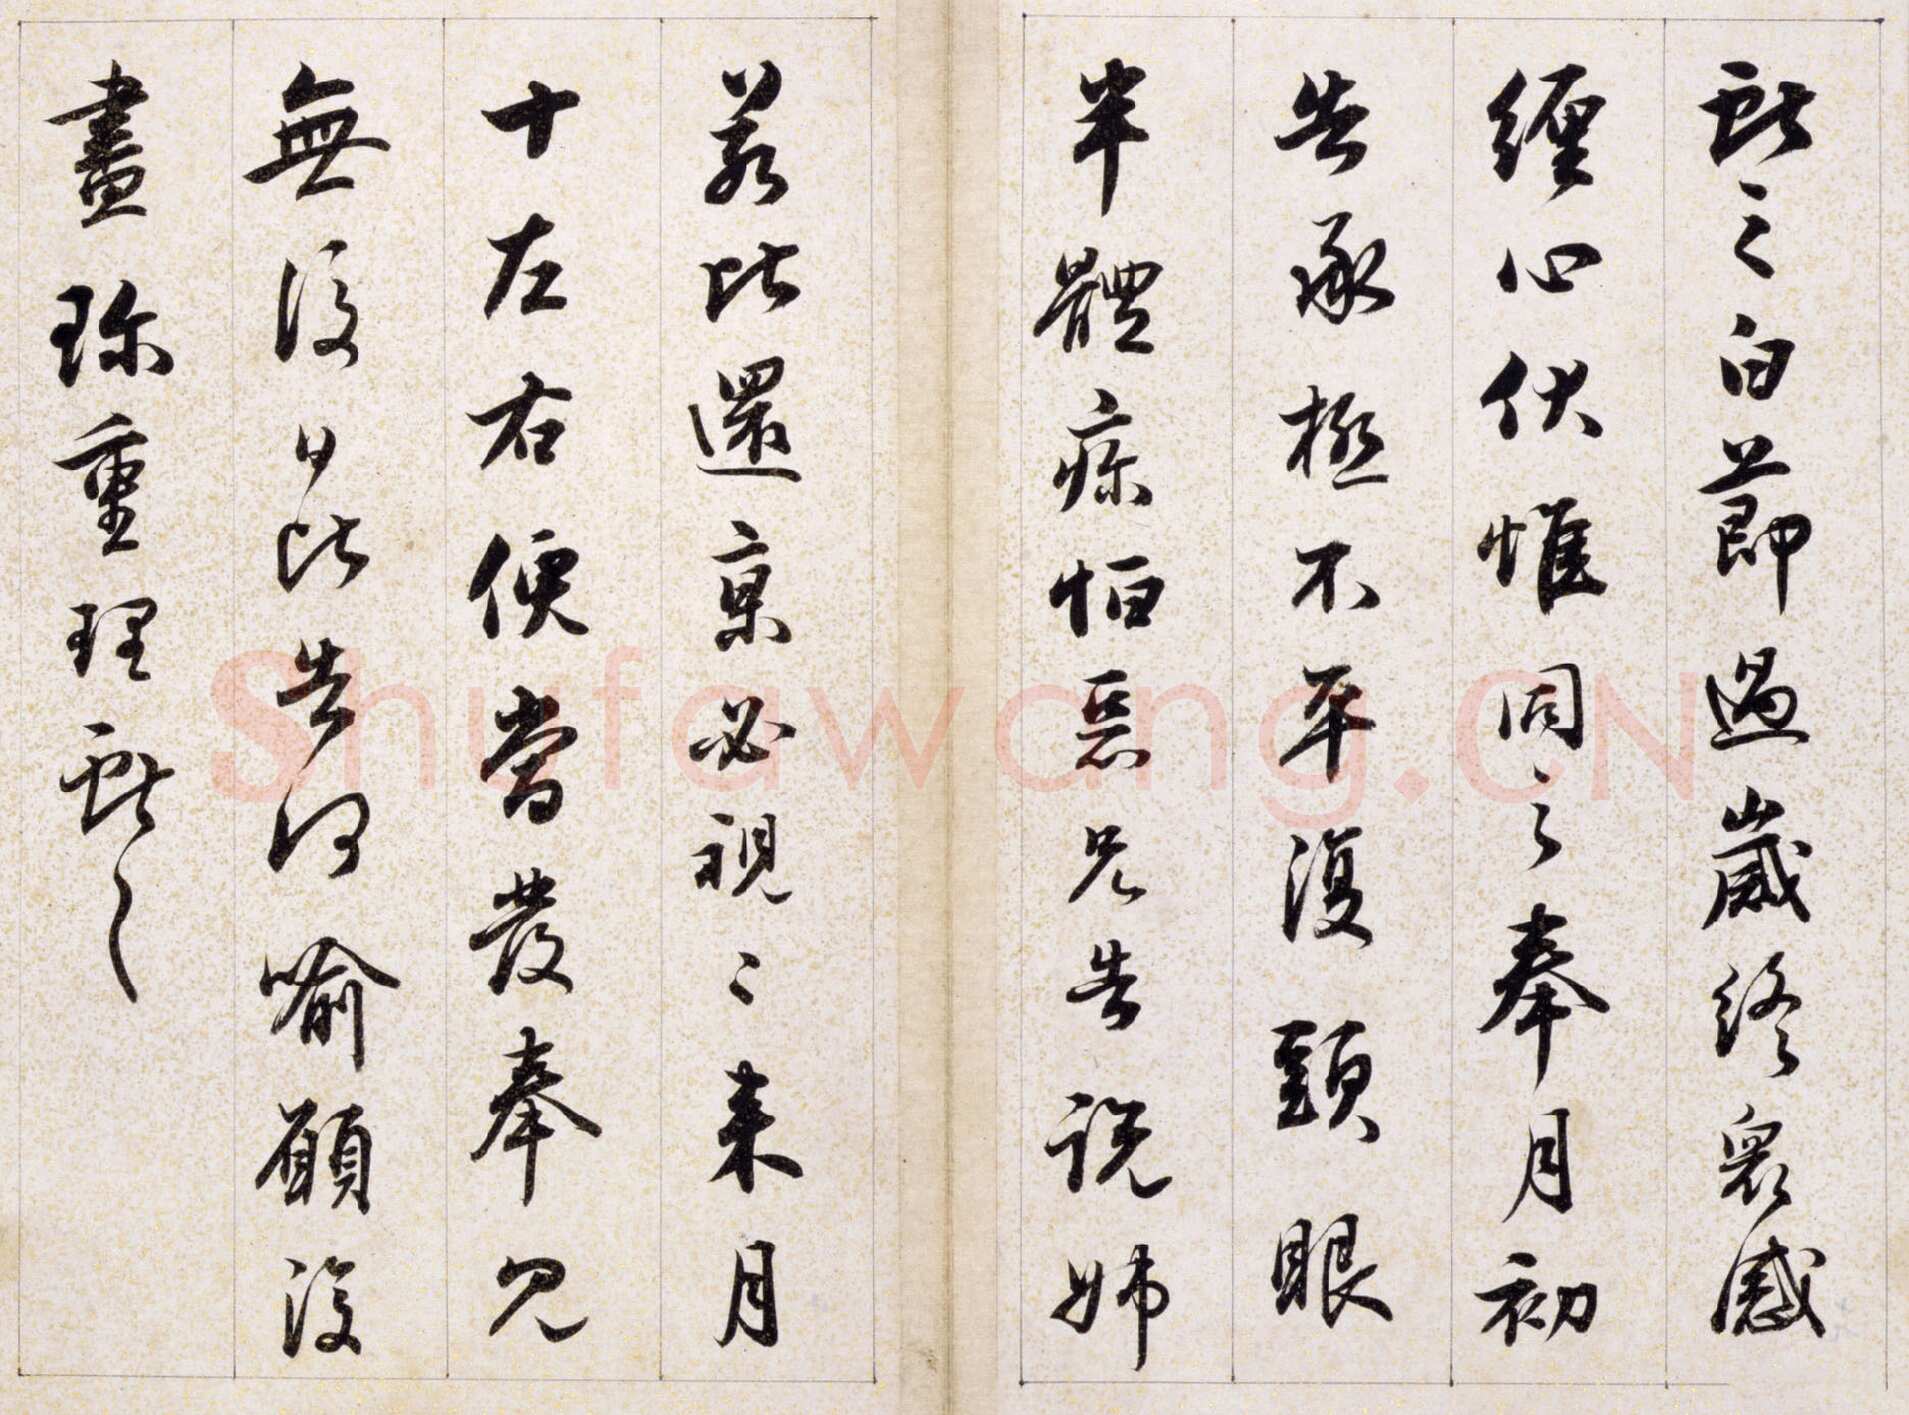 獻之白節過歲終衆感
纏心伏惟同之奉月初
告承極不平復頭眼
半體疼怕惡兄告說姊
比還京必視之來月
十左右便當發奉見
無復日比告何喻願復
盡珎重理獻之
Shufawang.CN